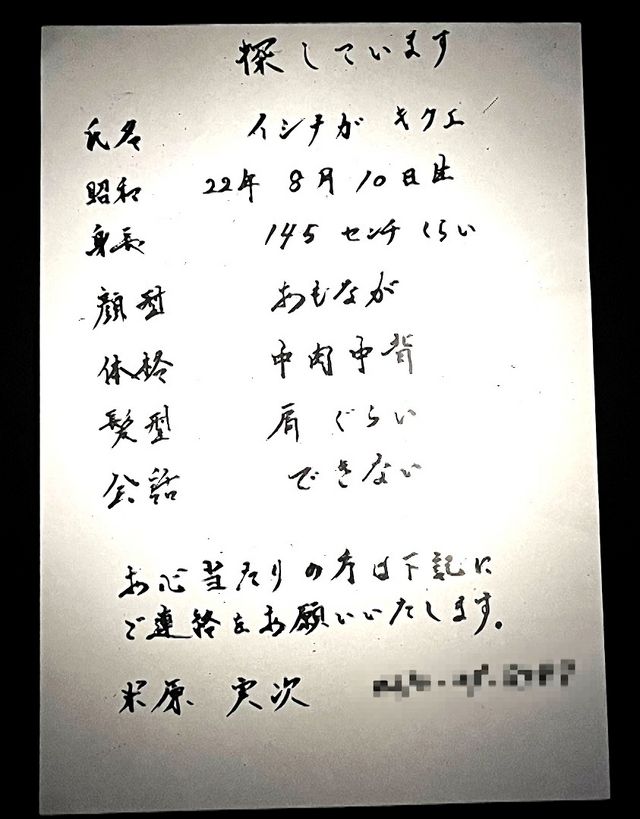 探しています
氏名 イシナガ キクエ
昭和 22年 8月10日生
身長 145 センチくらい
顔型 おもなが
体格 中肉中背
髪型 肩ぐらい
会話 できない
お心当たりの方は下記に
ご連絡をお願いいたします。
米原 実次